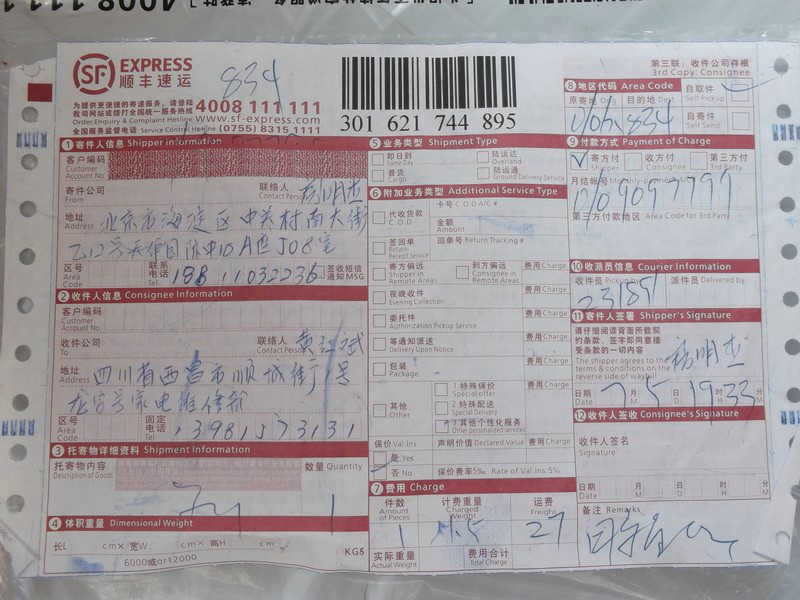 SF EXPRESS
顺丰速运
834
为提供更便捷的寄递服务,请登陆
我司网站或拨打全国统一服务热线 4008 111 111
Order Enquiry & Complaint Hotline www.sf-express.com
全国服务监督电话 Service Control Hotline (0755) 8315 1111
301 621 744 895
第三联:收件公司存根
3rd Copy: Consignee
1 寄件人信息 Shipper Information
客户编码
Customer
Account No.
寄件公司
From
联络人
Contact Person
地址
Address
北京市海淀区中关村南大街
区号
Area
Code
联系
电话
Tel
18811032236
签收短信
通知MSG
2 收件人信息 Consignee Information
客户编码
Customer
Account No.
收件公司
To
联络人
Contact Person
地址
Address
四川省西昌市顺城街1号
家电维修部
区号
Area
Code
固定
电话
Tel
13981573131
3 托寄物详细资料 Shipment Information
托寄物内容
Description of Goods
数量 Quantity
1
4 体积重量 Dimensional Weight
长L cm× 宽W cm× 高H cm
6000或or12000
KGS
5 业务类型 Shipment Type
即日到
Same Day
陆运达
Overland
普货
Cargo
陆运通
Ground Delivery Service
6 附加业务类型 Additional Service Type
代收货款
C.O.D
卡号 C.O.D A/C #
金额
Amount
签回单
Return
Receipt Service
回单号 Return Tracking #
寄方偏远
Shipper in
Remote Areas
到方偏远
Consignee in
Remote Areas
费用 Charge
夜晚收件
Evening Collection
费用 Charge
委托件
Authorization Pickup Service
费用 Charge
等通知派送
Delivery Upon Notice
费用 Charge
包装
Package
费用 Charge
其他
Other
1 特殊保价
Special offer
2 特殊配送
Special Delivery
3 其他个性化服务
Other personalized services
费用 Charge
保价 Val.Ins
声明价值 Declared Value
费用 Charge
是 Yes
否 No
保价费率5‰ Rate of Val.Ins.5‰
7 费用 Charge
件数
Amount
of Pieces
计费重量
Charged
Weight
运费
Freight
1
27
实际重量
Actual Weight
费用合计
Total Charge
8 地区代码 Area Code
原寄地 目的地 Dest
834
自取件
Self Pickup
自寄件
Self Send
9 付款方式 Payment of Charge
寄方付
Shipper
收方付
Consignee
第三方付
3rd Party
月结账号
第三方付款地区 Area Code for 3rd Party
10 收派员信息 Courier Information
收件员 Pickup by
派件员 Delivered by
11 寄件人签署 Shipper's Signature
请仔细阅读背面所载契
约条款,签字即同意接
受条款的一切内容
The shipper agrees to the
terms & conditions on the
reverse side of waybill
日期
Date
7月
M
5日
D
19时
H
33分
M
12 收件人签收 Consignee's Signature
收件人签名
Signature
日期
Date
月
M
日
D
时
H
分
M
备注 Remarks